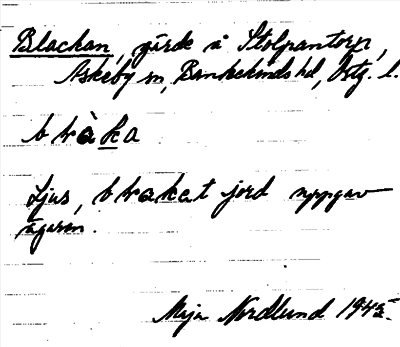 Blackan, gärde å Stolpantorp,
Askeby sn, Bankekinds hd, Östg. l.
bràka
Ljus, brakat jord uppgav
ägaren.
Maja Nordlund 1945